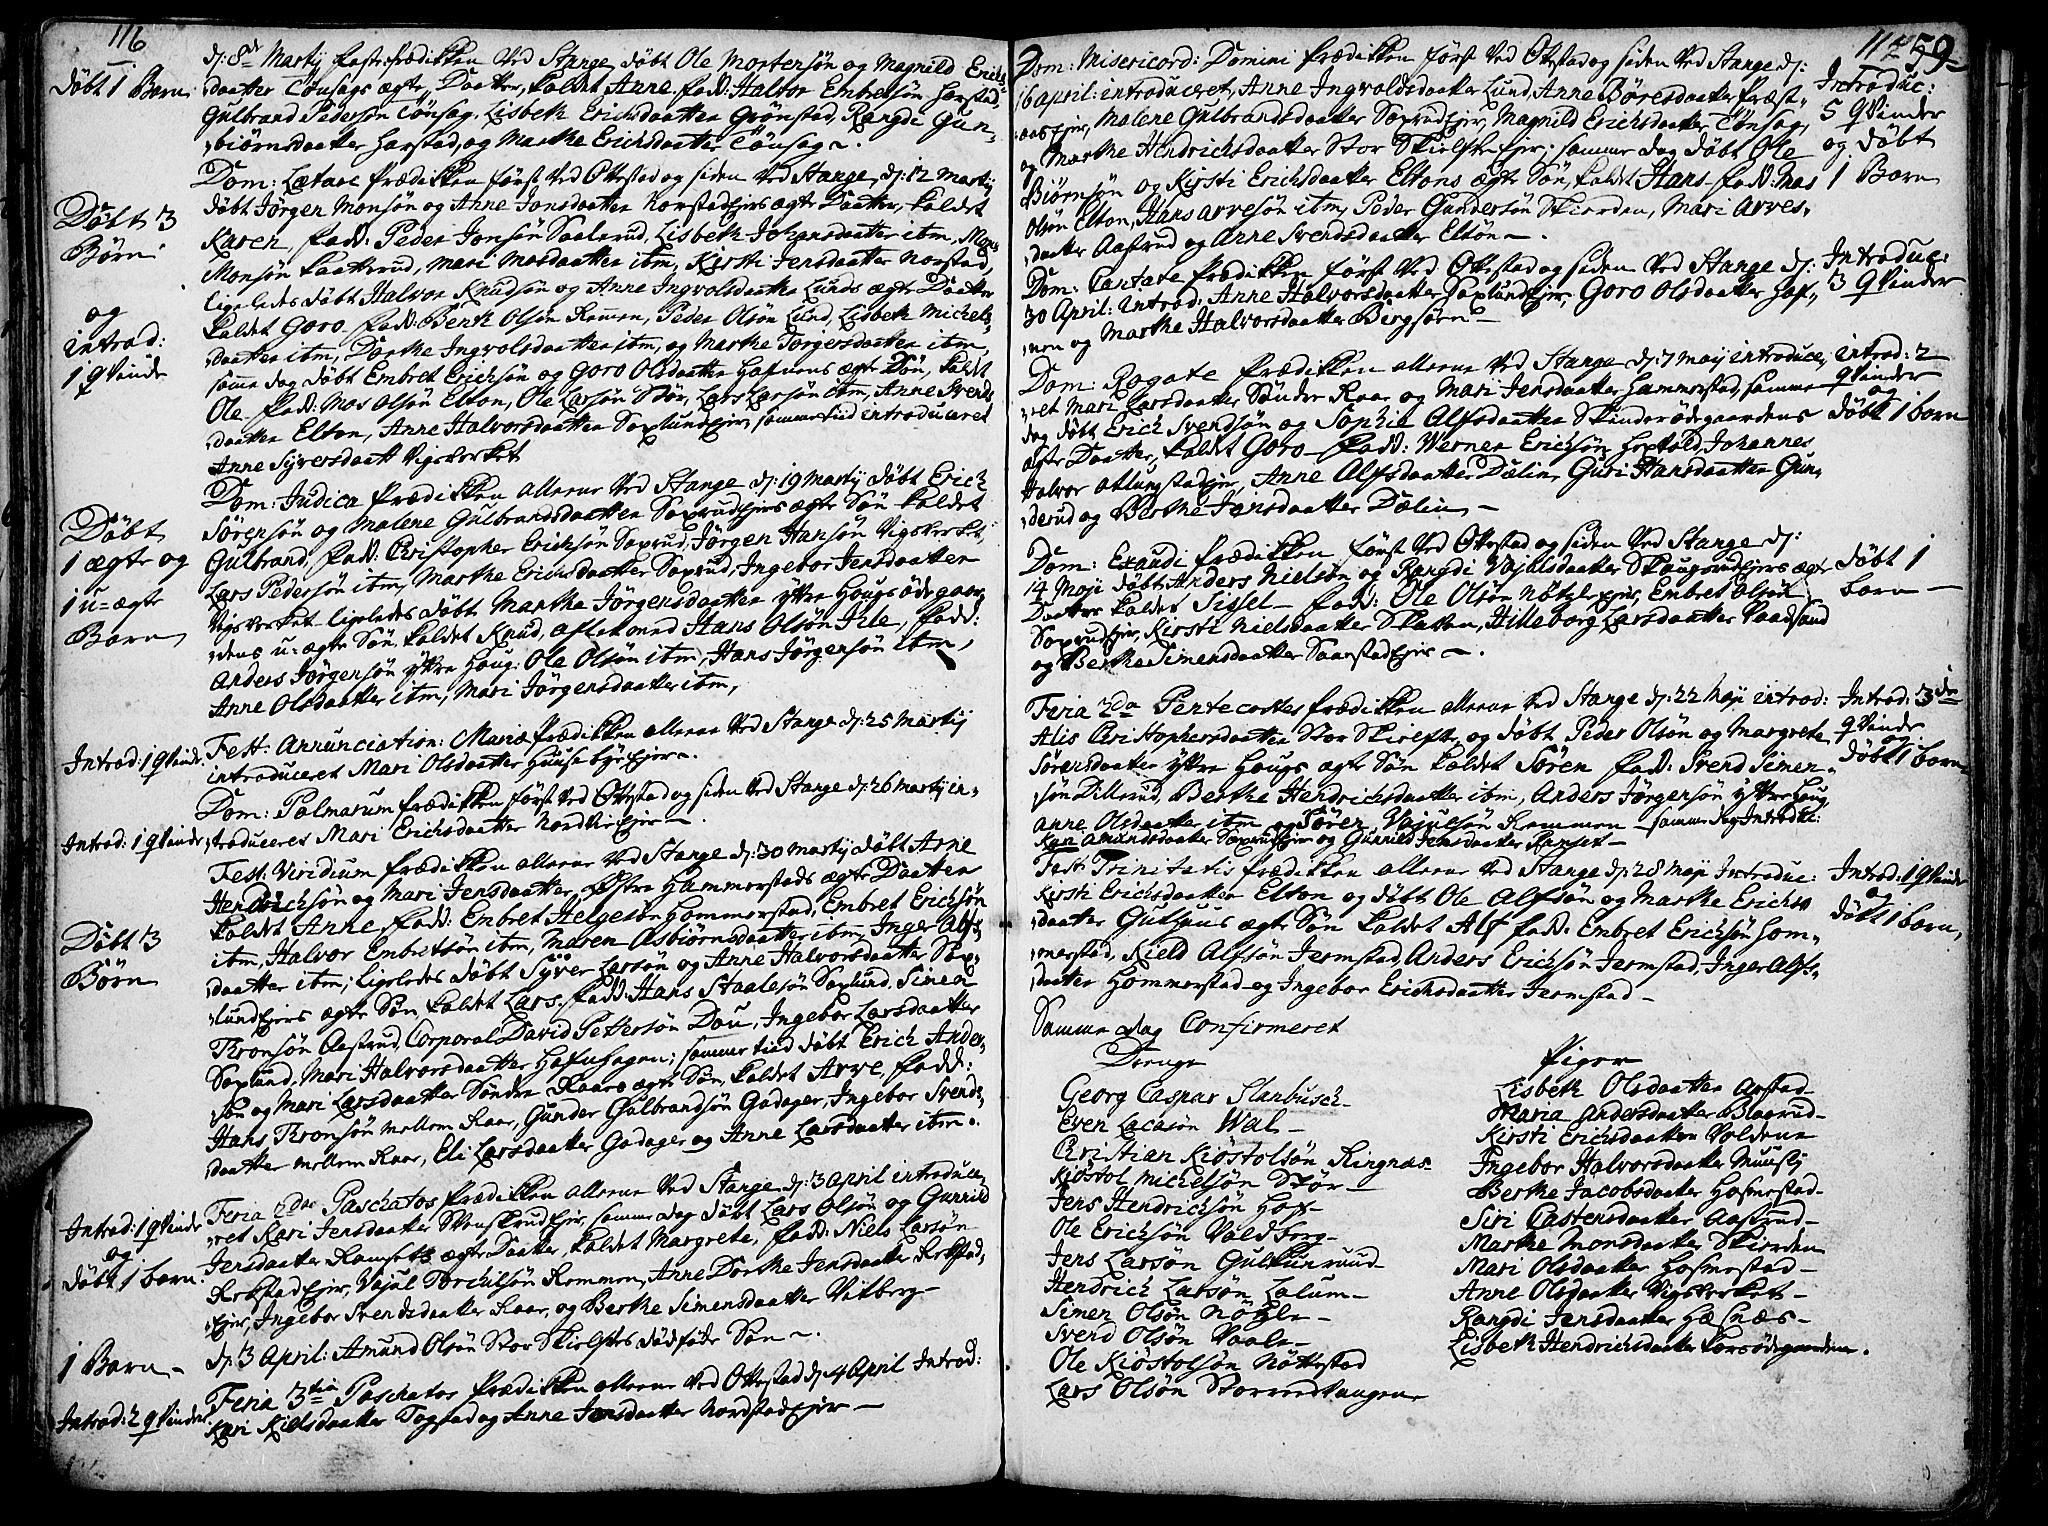 116
Döbt 1 Barn
d: 8de Martij fasteprædikken ved Stange, döbt Ole Mortensön og Magnild Erichs-
daatter Tönsags ægte Daatter, kaldet Anne, fadd: Halvor Embretsön Harstad,
Gulbrand Pedersön Tönsag, Lisbeth Erichsdaatter Grönstad, Rangdi Gun-
biörnsdaatter Harstad, og Marthe Erichsdaatter Tönsag.
Döbt 3
Börn
og
introd:
1 qvinde
Dom: Lætare prædikken först ved Ottestad og siden ved Stange, d: 12 Martij
döbt Jörgen Monsön og Anne Jonsdaatter Norstadejers ægte Daatter, kaldet
Karen, fadd: Peder Jonsön Saalerud, Lisbeth Johansdaatter itm, Mons
Monsön Laatterud, Mari Mosdaatter itm, Kirsti Jensdaatter Norstad,
ligeledes döbt Halvor Knudsön og Anne Ingvolsdaatter Lunds ægte Daatter
kaldet Goro, fadd: Bent Olsön Rommen, Peder Olsön Lund, Lisbeth Michels-
daatter itm, Dorthe Ingvolsdaatter itm, og Marthe Torgersdaatter itm,
samme dag döbt Embret Erichsön og Goro Olsdaatter Hafmens ægte Sön, kaldet
Ole, fadd: Mos Olsön Elton, Ole Larsön Stör, Lars Larsön itm, Anne Svends-
daatter Elton, Anne Halvorsdaatter Saxlundejer, samme tiid introduceret
Anne Syversdaatt Vigsverket
Döbt
1 ægte og
1 u-ægte
Barn
Dom: Judica prædikken allene ved Stange d: 19 Martij döbt Erich
Sörensön og Malene Gulbrandsdaatter Saxrudejers ægte Sön kaldet
Gulbrand, fadd: Christopher Erichsön Saxrud, Jörgen Hansön Vigsverket,
Lars Pedersön itm, Marthe Erichsdaatter Saxrud, Ingebor Jensdaatter
Vigsverket, ligeledes döbt Marthe Jörgensdaatter ytter Hougs ödegaar-
dens u-ægte Sön, kaldet Knud, aflet med Hans Olsön Ile, fadd:
Anders Jörgensön ytter Houg, Ole Olsön itm, Hans Jörgensön itm,
Anne Olsdaatter itm, Mari Jörgensdaatter itm,
Introd: 1 qvinde
Fest: Annunciation: Mariæ prædikken allene ved Stange d: 25 Martij
introduceret Mari Olsdaatter Huusebyeejer.
Introd: 1 qvinde
Dom: Palmarum prædikken först ved Ottestad og siden ved Stange d: 26 Martij in-
troduceres Mari Erichsdaatter Nordvieejer.
Döbt 3
Börn
Fest: Viridium prædikken allene ved Stange d: 30 Martij döbt Arne
Hendrichsön og Mari Jensdaatter, Östre Hammerstads ægte Daatter
kaldet Anne, fadd: Embret Helgesön Hommerstad, Embret Erichsön
itm, Halvor Embretsön itm, Maren Asbiörnsdaatter itm, Inger Alfs-
daatter itm, ligeledes döbt Syver Larsön og Anne Halvorsdaatter Sax-
lundejers ægte Sön, kaldet Lars, fadd: Hans Staalesön Saxlund, Simen
Tronsön Aastrud, Corporal David Pettersön Dau, Ingebor Larsdaatter
Saxlund, Mari Halvorsdaatter Hafnhagen; samme tiid döbt Erich Ander-
sön og Mari Larsdaatter Söndre Kaars ægte Sön, kaldet Arve, fadd:
Hans Tronsön mellem Kaar, Gunder Gulbrandsön Gadager, Ingebor Svends-
daatter mellem Kaar, Eli Larsdaatter Gadager og Anne Larsdaatter itm.
Introd: 1 qvinde
og
döbt 1 barn.
Feria 2dae Paschatos prædikken allene ved Stange d: 3 April introduce-
ret Kari Jensdaatter Svenskrudejer, samme dag döbt Lars Olsön og Gunnild
Jensdaatter Ramsets ægte Daatter, kaldet Margrete, fadd: Niels Larsön
Arkstadejer, Vajul Torchilsön Rommen, Anne Dorthe Jensdaatter Arkstad-
ejer, Ingebor Svendsdaatter Kaar, og Berthe Simensdaatter Vitberg
1 Barn
d: 3 April: Amund Olsön Stor Skielfters dödföde Sön.
Introd: 2 qvinder
Feria 3tia Paschatos prædikken allene ved Ottestad d: 4 April Introd:
Kari Kielsdaatter Togstad og Anne Jonsdaatter Nordstadejer
117
59
Dom: Misericord: Domini prædikken först ved Ottestad og siden ved Stange d:
16 April: introduceret, Anne Ingvoldsdaatter Lund, Anne Böresdaatter Præst-
aasejer, Malene Gulbrandsdaatter Saxrudejer, Magnild Erichsdaatter Tönsag,
og Marthe Hindrichsdaatter Stor Skielfterejer; samme dag döbt Ole
Biörnsön og Kirsti Erichsdaatter Eltons ægte Sön, kaldet Hans, fadd: Mos
Olsön Elton, Hans Arvesön itm, Peder Gundersön Skiorden, Mari Arves-
daatter Aastrud og Anne Svendsdaatter Elton.
Introduc:
5 qvinder
og döbt
1 Barn
Dom: Cantate prædikken först ved Ottestad og siden ved Stange d:
30 April: Introd: Anne Halvorsdaatter Saxlundejer, Goro Olsdaatter Haf-
men og Marthe Halvorsdaatter Bergsörn
Introduc:
3 qvinder
Dom: Rogate prædikken allene ved Stange d: 7 Maij introduce-
ret Mari Larsdaatter Sönder Kaar og Mari Jensdaatter Hammerstad, samme
dag döbt Erich Svendsön og Sophie Alfsdaatter Skinderödegaardens
ægte Daatter, kaldet Goro, fadd: Werner Erichsön Hoxtöld, Johannes
Halvor Atlungstadejer, Anne Alfsdaatter Dælin, Guri Hansdaatter Gun-
derud og Berthe Jonsdaatter Dælin
introd: 2
qvinder
og
döbt 1 barn
Dom: Exaudi prædikken först ved Ottestad og siden ved Stange d:
14 Maij döbt Anders Nielsön og Rangdi Vajulsdaatter Skaugsrudejers ægte
Daatter kaldet Sissel, fadd: Ole Olsön Nötzlejer, Embret Olsön
Saxrudejer, Kirsti Nielsdaatter Skatten, Hilleborg Larsdaatter Vaadsand
og Berthe Simensdaatter Saarstadejer.
Döbt 1
barn
Feria 2da Pentecostes prædikken allene ved Stange d: 22 Maji introd:
Alis Christophersdaatter Stor Skielfte, og döbt Peder Olsön og Margrete
Sörensdaatter ytter Hougs ægte Sön kaldet Sören fadd: Svend Simen-
sön Dillerud, Berthe Hendrichsdaatter itm, Anders Jörgensön ytter Houg,
Anne Olsdaatter itm og Sören Vajulsön Rommen, samme dag Introd:
Kari Amundsdaatter Saxrudejer og Gunnild Jensdaatter Ramset
Introd: 3de
qvinder
og
döbt 1 barn
Fest: Trinitatis prædikken allene ved Stange d: 28 Maji Introduc:
Kirsti Erichsdaatter Elton og döbt Ole Alfsön og Marthe Erichs-
daatter Guthuus ægte Sön kaldet Alf fadd: Embret Erichsön Hom-
merstad, Kield Alfsön Jermstad, Anders Erichsön Jermstad, Inger Alfs-
daatter Hommerstad og Ingebor Erichsdaatter Jermstad
Introd: 1 qvinde
og
döbt 1 barn,
Samme dag Confirmeret
Drenge
Georg Caspar Stanbusch
Even Lacasön Wal
Christian Kiöstolsön Ringnæs
Kiöstol Michelsön Stör
Jens Hendrichsön Hof
Ole Erichsön Valdberg
Jens Larsön Gulkunruud
Hendrich Larsön Lalum
Simen Olsön Nötzle
Svend Olsön Vaale
Ole Kiöstolsön Nöttestad
Lars Olsön Storrvedvangen
Piger
Lisbeth Olsdaatter Aarstad
Maria Andersdaatter Blagrud
Kirsti Erichsdaatter Voldene
Ingebor Halvorsdaatter Muusly
Berthe Jacobsdaatter Hosmestad
Siri Castensdaatter Aastrud
Marthe Monsdaatter Skiorden
Mari Olsdaatter Hosmestad
Anne Olsdaatter Vigsverket
Rangdi Jensdaatter Hæsnæs
Lisbeth Hendrichsdaatter Korsödegaarden.